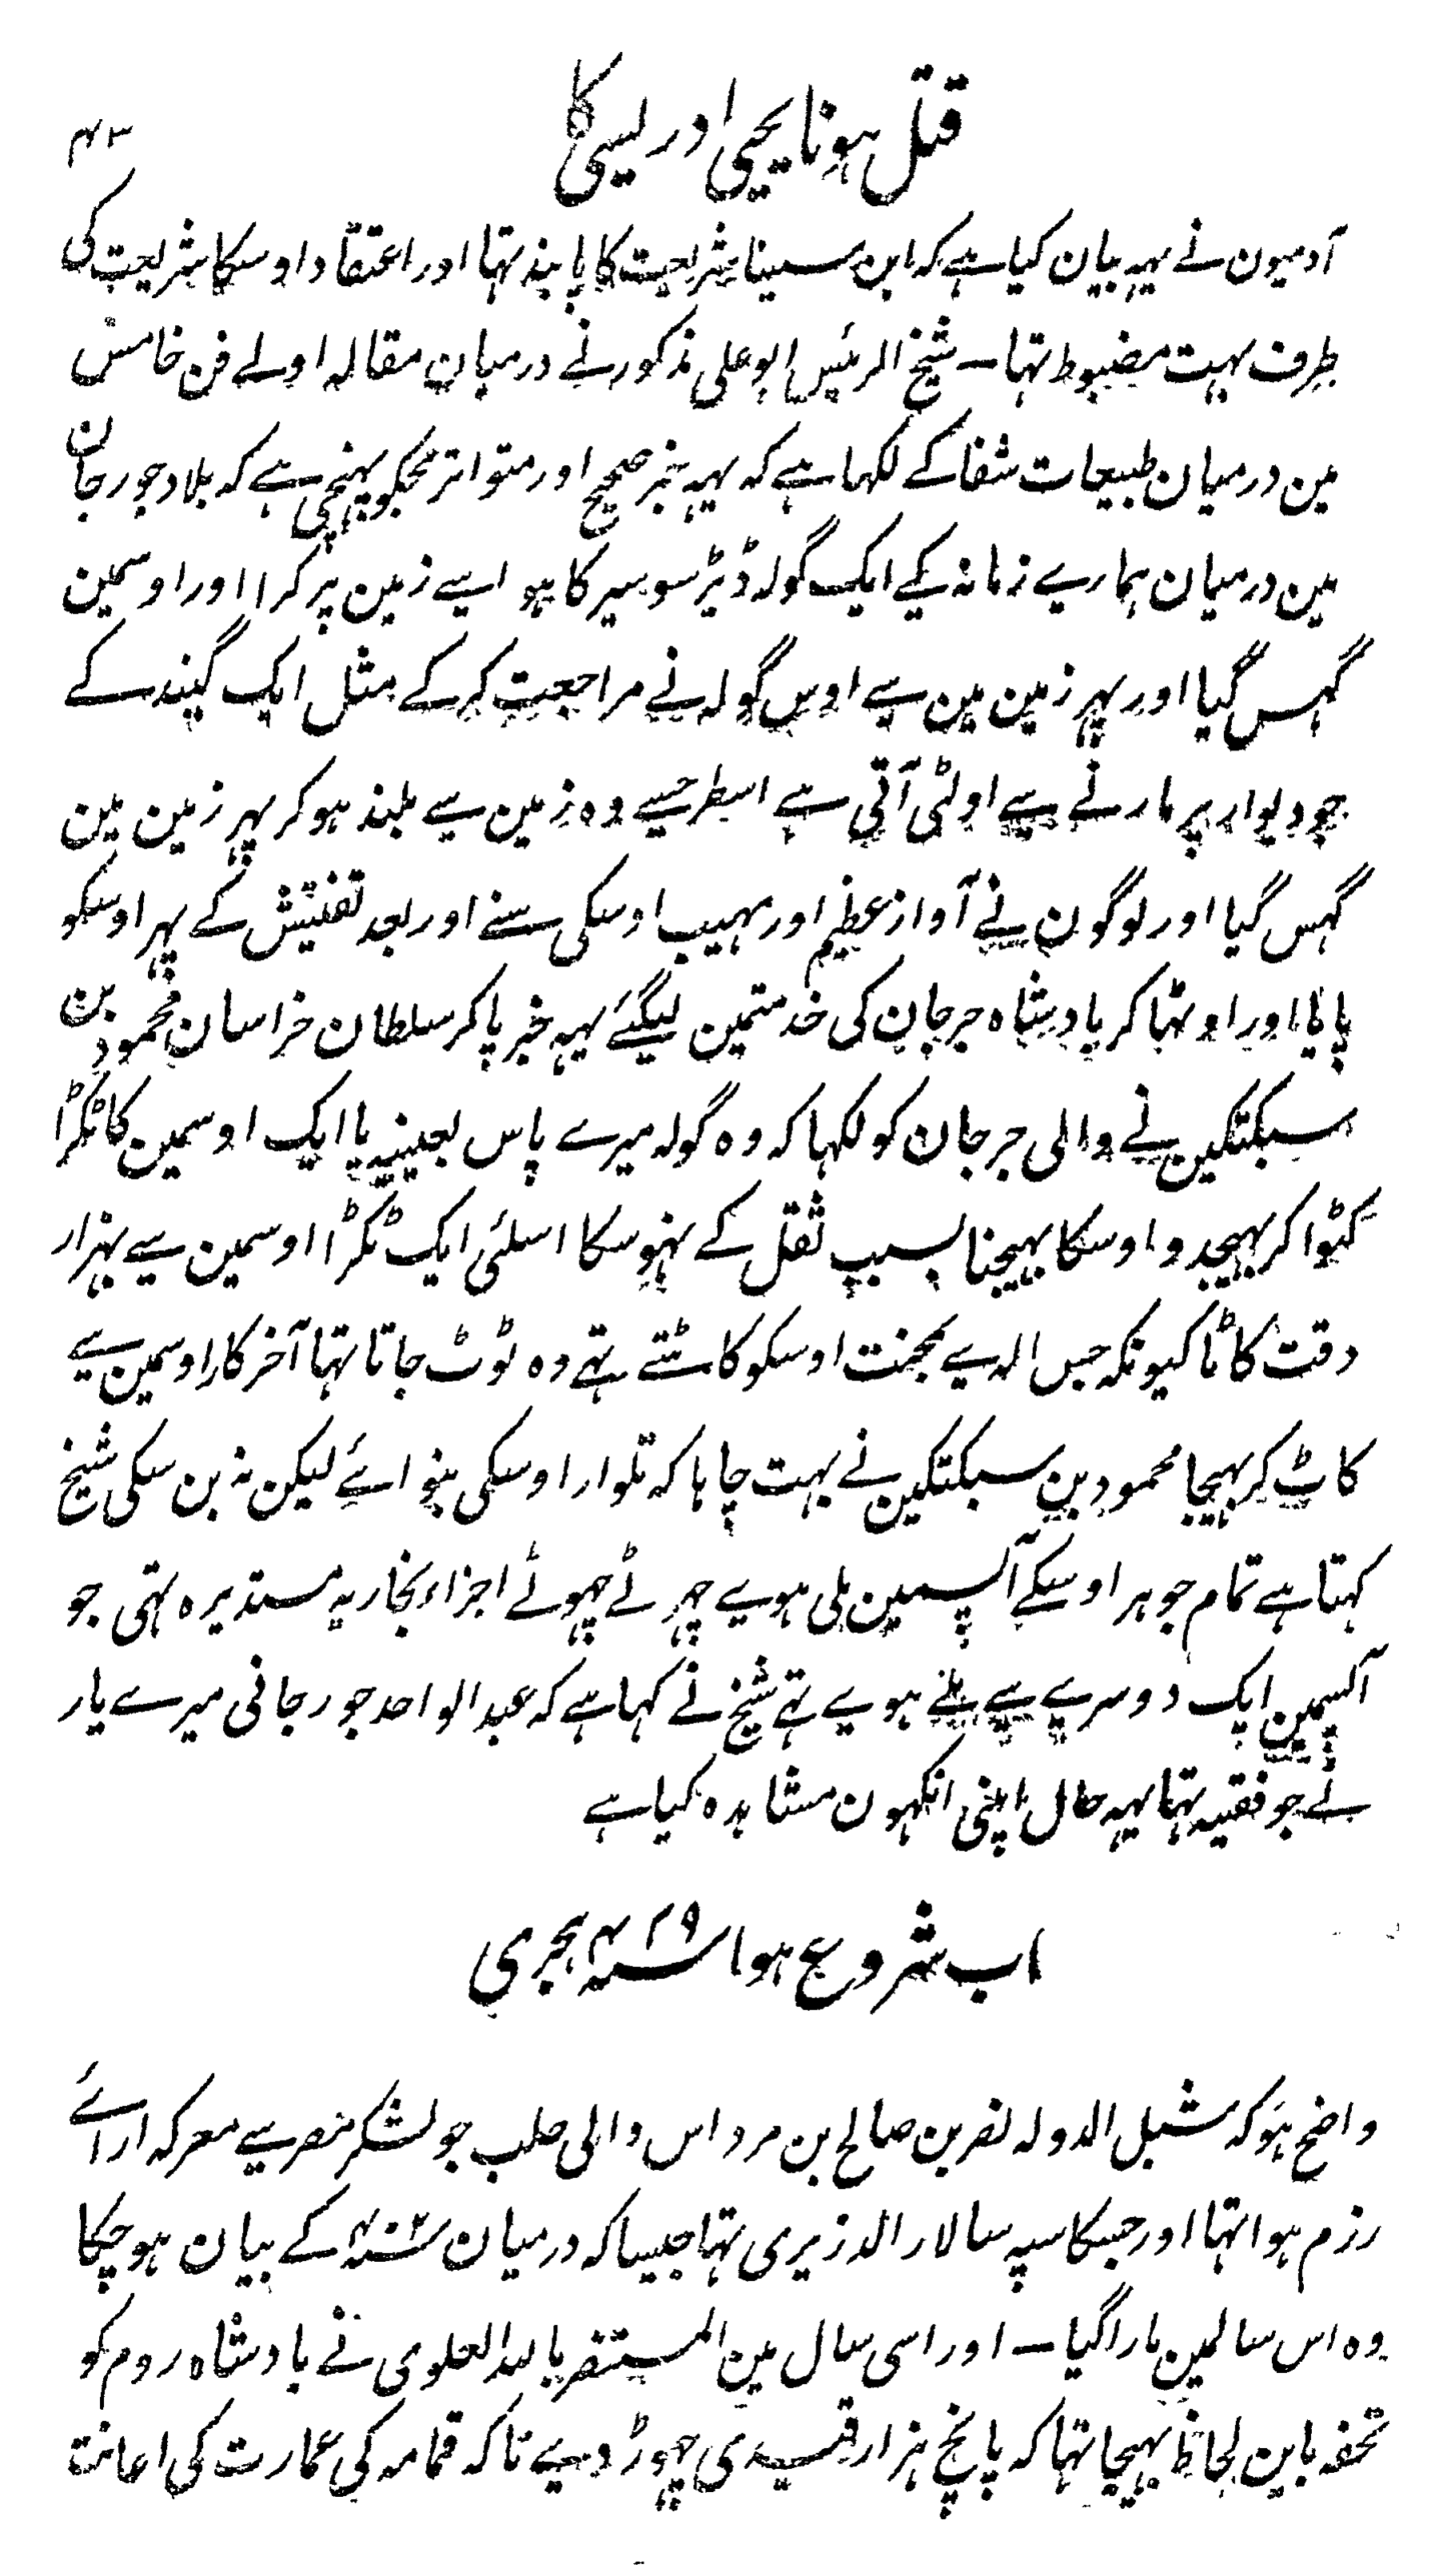 قتل ہونا یحیی ادریسی کا
۴۳
آدمیون نے یہہ بیان کیا ہے کہ ابن سینا شریعت کا پابند تہا اور اعتقاد اوسکا شریعت کی
طرف بہت مضبوط تہا ۔ شیخ الرئیس ابو علی مذکور نے درمیان مقالہ اولے فن خامس
مین درمیان طبیعات شفا کے لکہا ہے کہ یہہ خبر صحیح اور متواتر مجکو پہنچی ہے کہ بلاد جورجان
مین درمیان ہمارے زمانہ کے ایک گولہ ڈیڑ سو سیر کا ہوا سے زمین پر گرا اور اوسمین
گہس گیا اور پہر زمین مین سے اوس گولہ نے مراجعت کر کے مثل ایک گیند کے
جو دیوار پر مارنے سے اولٹی آتی ہے اسطرحسے وہ زمین سے بلند ہو کر پہر زمین مین
گہس گیا اور لوگون نے آواز عظیم اور مہیب اوسکی سنے اور بعد تفتیش کے پہر اوسکو
پایا اور اوٹہا کر پادشاہ جرجان کی خدمتمین لیگئے یہہ خبر پا کر سلطان خراسان محمود بن
سبکتکین نے والی جرجان کو لکہا کہ وہ گولہ میرے پاس بعینہ یا ایک اوسمین کا ٹکڑا
کٹوا کر بہیجدو اوسکا بہیجنا بسبب ثقل کے نہوسکا اسلئی ایک ٹکڑا اوسمین سے بہزار
دقت کاٹا کیونکہ جس الہ سے بمحنت اوسکو کاٹتے تہے وہ ٹوٹ جاتا تہا آخر کار اوسمین سے
کاٹ کر بہیجا محمود بن سبکتکین نے بہت چاہا کہ تلوار اوسکی بنوائے لیکن نہ بن سکی شیخ
کہتا ہے تمام جوہر اوسکے آپسمین ملی ہوے چہوٹے چہوٹے اجزاء بخاریہ مستدیرہ تہی جو
آپسمین ایک دوسرے سے ملے ہوے تہے شیخ نے کہا ہے کہ عبد الواحد جورجانی میرے یار
نے جو فقیہ تہا یہہ حال اپنی انکہون مشاہدہ کیا ہے
اب شروع ہوا سنہ ۴۲۹ ہجری
واضح ہو کہ شبل الدولہ نصر بن صالح بن مرداس والی حلب جو لشکر مصر سے معرکہ ارائے
رزم ہوا تہا اور جسکا سپہ سالار الدزبری تہا جیسا کہ درمیان سنہ ۴۰۲ کے بیان ہو چکا
وہ اس سالمین مارا گیا ۔ اور اسی سال مین المستنصر باللہ العلوی نے بادشاہ روم کو
تحفہ باین لحاظ بہیجا تہا کہ پانچ ہزار قیدی چہوڑ دیے تاکہ قمامہ کی عمارت کی اعانت